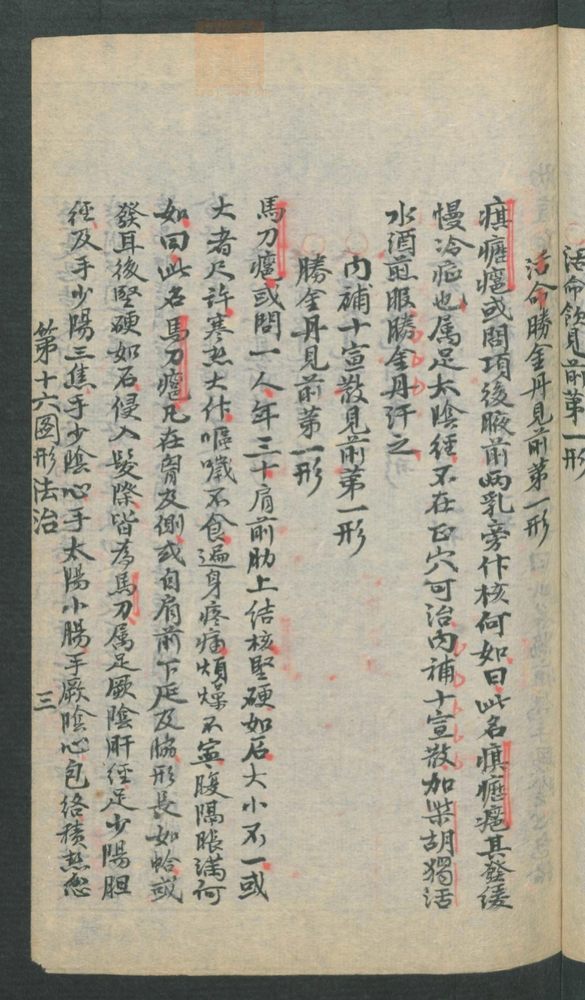 活命飲見前第一形
活命勝金丹見前第一形
瘨癧瘡或問項後腋前兩乳旁作核何如曰此名瘨癧瘡其發緩
慢冷症也属足太陰經不在正穴可治内補十宣散加柴胡獨活
水酒煎服勝金丹汗之
内補十宣散見前第一形
勝金丹見前第一形
馬刀瘡或問一人年三十肩前肋上结核堅硬如石大小不一或
大者尺許寒热大作嘔噦不食遍身疼痛煩燥不寧腹隔脹满何
如曰此名馬刀瘡凡在胷及側或自肩前下延及脇形長如蛤或
發耳後堅硬如石侵入髮際皆为馬刀属足厥陰肝經足少陽胆
徑及手少陽三焦手少陰心手太陽小腸手厥陰心包络積热
第十六圖形法治
三